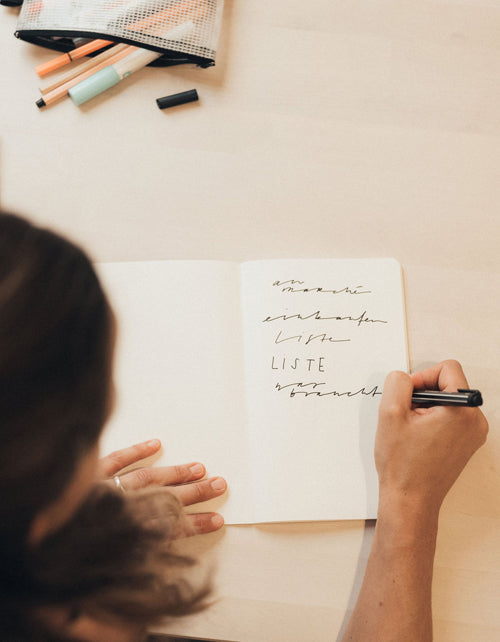 au
marché
einkaufen
liste
LISTE
was
braucht